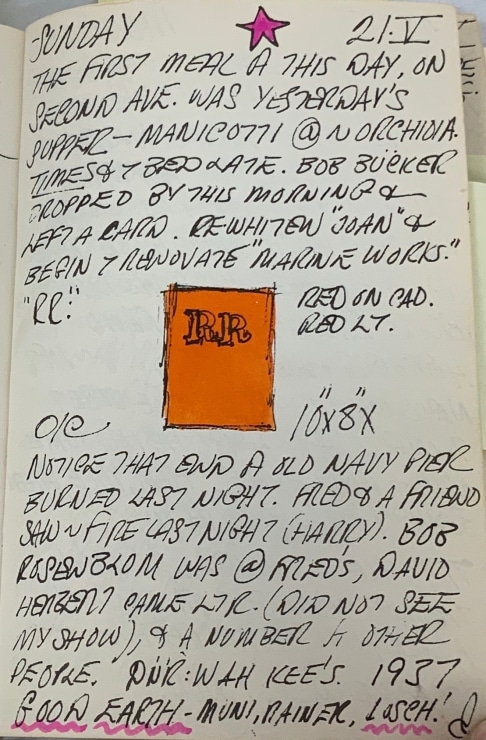 -SUNDAY 21·V
THE FIRST MEAL A THIS DAY, ON
SECOND AVE. WAS YESTERDAY'S
SUPPER - MANICOTTI @ N ORCHIDIA.
TIMES & 7 BED LATE. BOB BUCKER
DROPPED BY THIS MORNING &
LEFT A CARD. REWHITEN "JOAN" &
BEGIN 7 RENOVATE "MARINE WORKS."
"RR."
RR
RED ON CAD.
RED LT.
O/C
10"X8"X
NOTICE THAT END A OLD NAVY PIER
BURNED LAST NIGHT. FRED & A FRIEND
SAW ~ FIRE LAST NIGHT (HARRY). BOB
ROSENBLOM WAS @ FRED'S, DAVID
HERBERT CAME LTR. (DID NOT SEE
MY SHOW), & A NUMBER OTHER
PEOPLE. DNR: WAH KEE'S. 1937
GOOD EARTH - MUNI, RAINER,